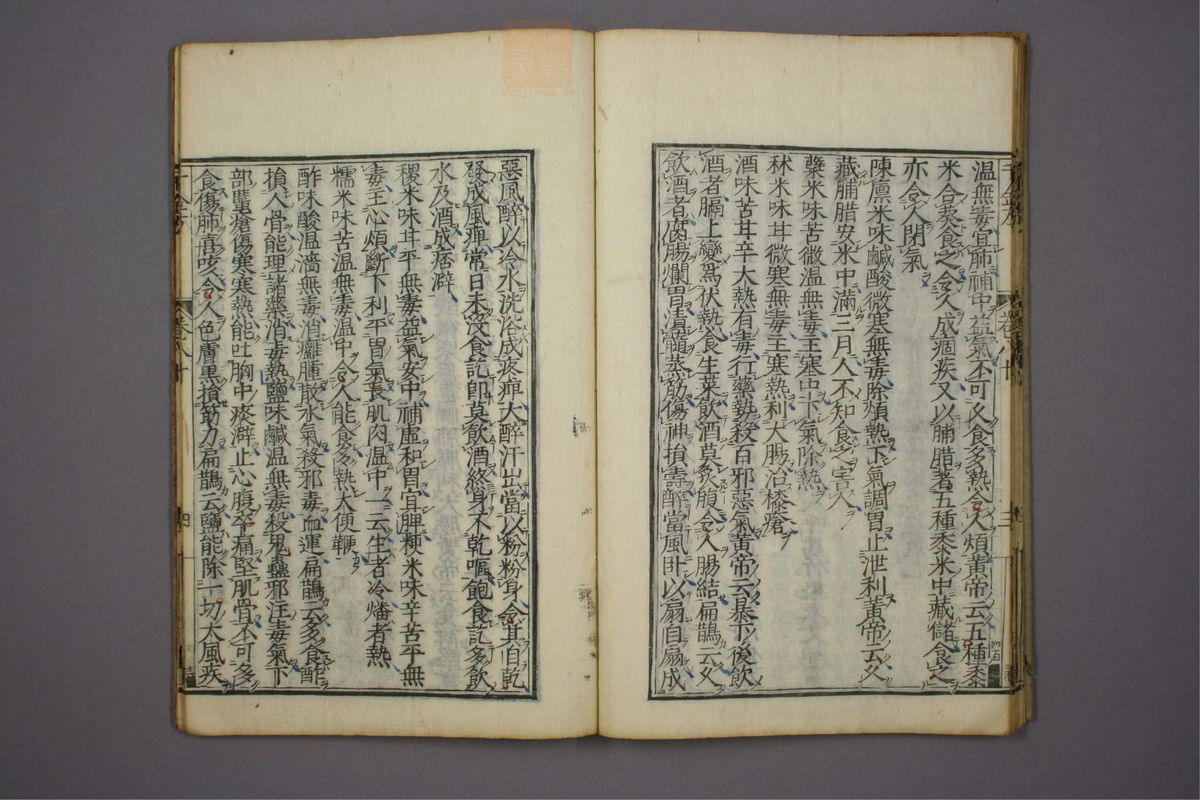 温無毒宜肺補中益氣不可久食多熱令人煩黃帝云五種黍
米合葵食之令人成痼疾又以脯腊著五種黍米中藏儲食之
亦令人閉氣
陳廩米味鹹酸微寒無毒除煩熱下氣調胃止泄利黃帝云久
藏脯腊安米中滿三月人不知食之害人
蘗米味苦微温無毒主寒中下氣除熱
秫米味甘微寒無毒主寒熱利大腸治㯃瘡
酒味苦甘辛大熱有毒行藥勢殺百邪惡氣黃帝云暴下後飲
酒者膈上變爲伏熱食生菜飲酒莫炙腹令人腸結扁鵲云久
飲酒者腐腸爛胃漬髓蒸筋傷神損壽醉當風卧以扇自扇成
惡風醉以冷水洗浴成疼痺大醉汗出當以粉粉身令其自乾
發成風痺常日未没食訖即莫飲酒終身不乾嘔飽食訖多飲
水及酒成痞澼
稷米味甘平無毒益氣安中補虛和胃宜脾粳米味辛苦平無
毒主心煩斷下利平胃氣長肌肉温中一云生者冷燔者熱
糯米味苦温無毒温中令人能食多熱大便鞕
酢味酸温濇無毒消癰腫散水氣殺邪毒血運扁鵲云多食酢
損人骨能理諸藥消毒熱鹽味鹹温無毒殺鬼蠱邪注毒氣下
部䘌瘡傷寒寒熱能吐胸中痰澼止心腹卒痛堅肌骨不可多
食傷肺喜咳令人色膚黑損筋力扁鵲云鹽能除一切大風疾
卷八十